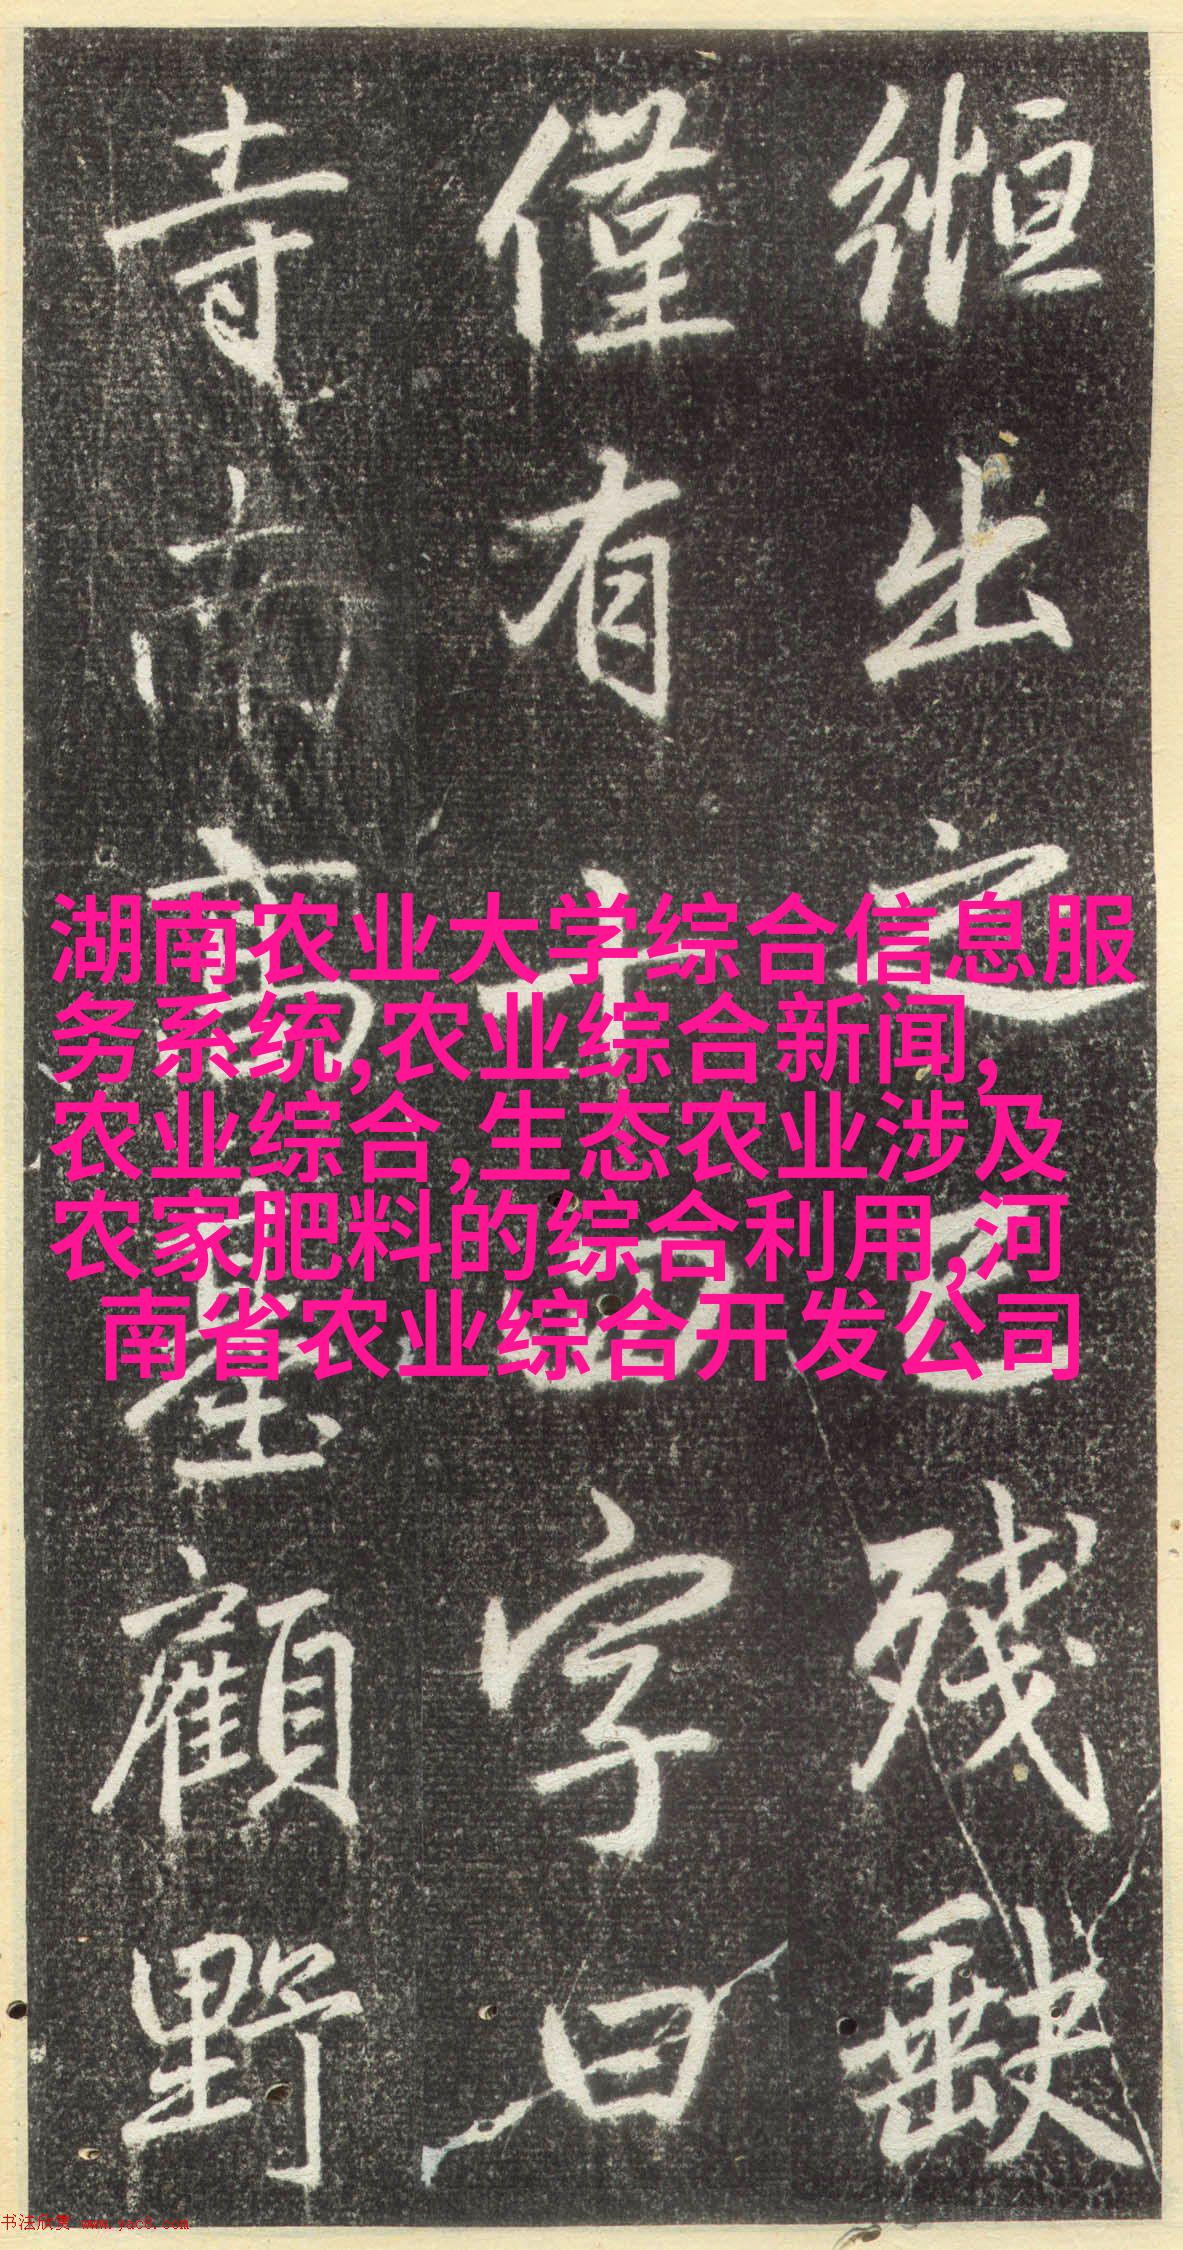 縆出之已残缺
僅有十四字曰
寺南高臺顧野
湖南农业大学综合信息服
务系统,农业综合新闻,
农业综合,生态农业涉及
农家肥料的综合利用,河
南省农业综合开发公司
书法欣赏 www.yac8.com